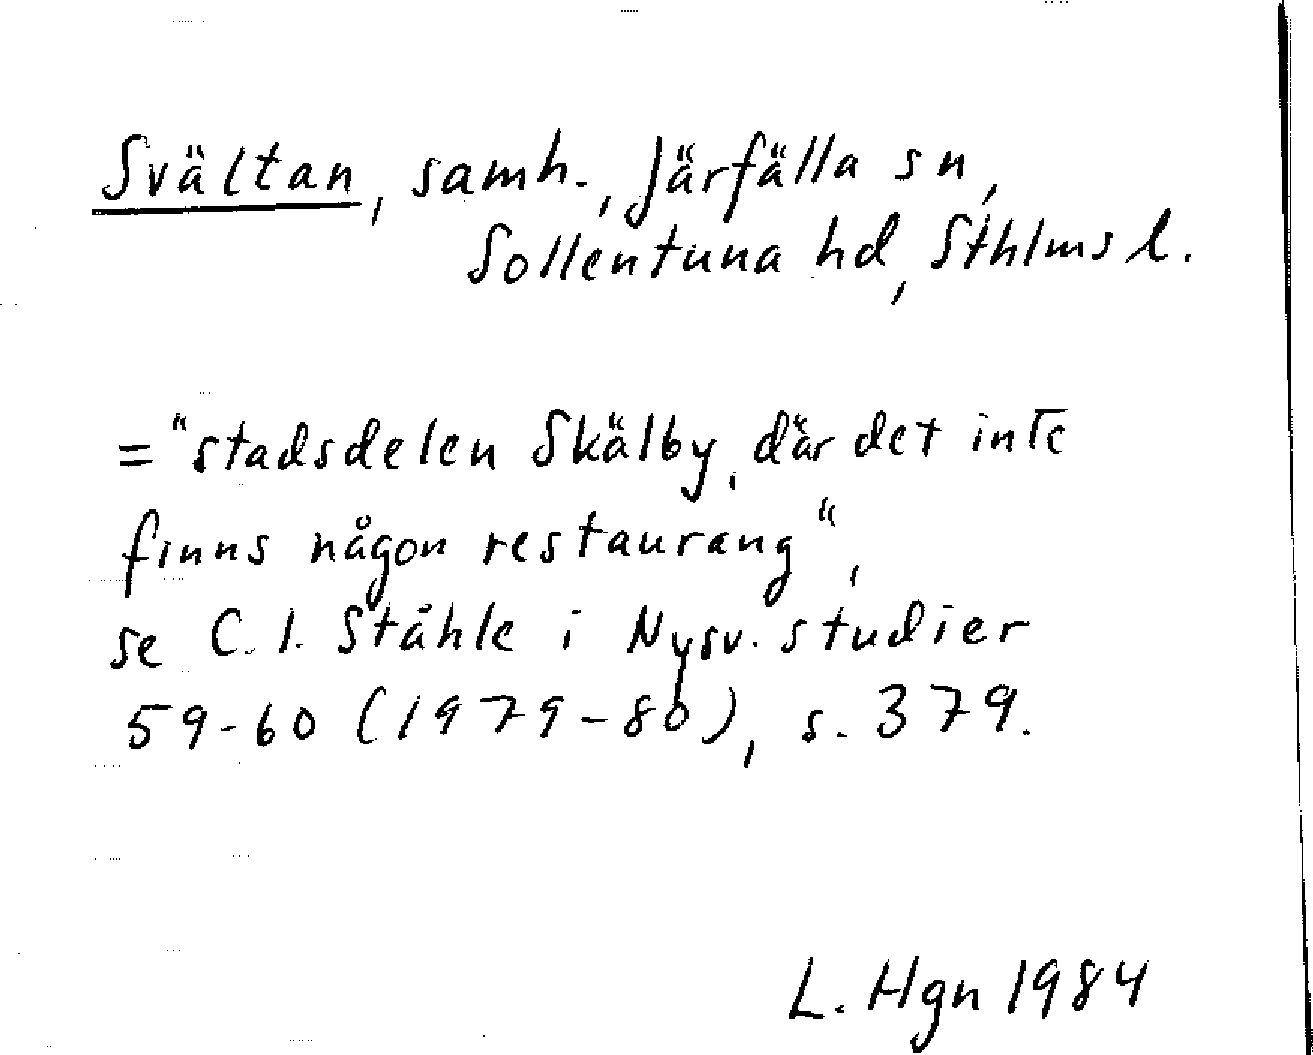 Svältan, samh., Järfälla sn,
Sollentuna hd, Sthlms l.
="stadsdelen Skälby, där det inte
finns någon restaurang",
se C. I. Ståhle i Nysv. studier
59-60 (1979-80), s. 379.
L. Hgn 1984